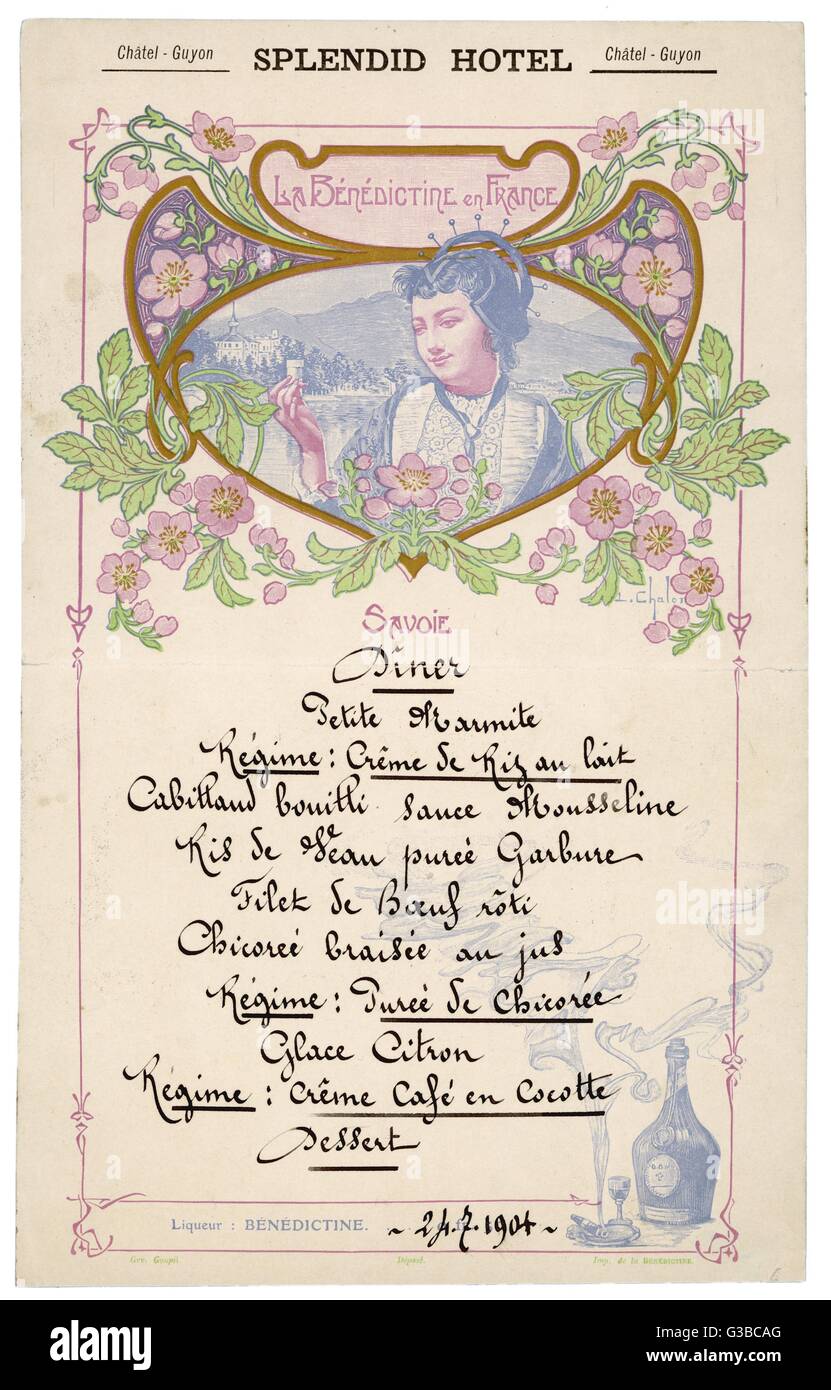 Châtel - Guyon SPLENDID HOTEL Châtel - Guyon
LA BÉNÉDICTINE en FRANCE
L. Chalon
SAVOIE
Dîner
Petite Marmite
Régime : Crême de Riz au lait
Cabillaud bouilli sauce Mousseline
Ris de Veau pureé Garbure
Filet de Bœuf rôti
Chicoreé braisée au jus
Régime : Pureé de Chicorée
Glace Citron
Régime : Crême Café en Cocotte
Dessert
Liqueur : BÉNÉDICTINE. ~ 24.7.1904 ~
Grv. Goupil Déposé. Imp. de la BÉNÉDICTINE.
alamy
alamy
alamy
alamy
alamy
Image ID: G3BCAG
www.alamy.com